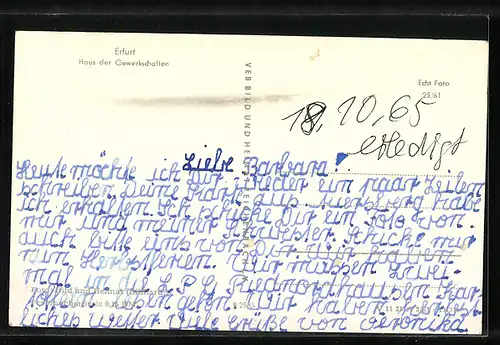 Erfurt
Haus der Gewerkschaften
VEB BILD UND HEIMAT REICHENBACH
Echt Foto
25/61
18.10.65
erledigt
Liebe Barbara!
Heute möchte ich dir wieder ein paar Zeilen
schreiben. Deine Karte aus Auersberg habe
ich erhalten. Ich schicke Dir ein Foto von
mir und meiner Schwester. Schicke mir
auch bitte eins von Dir. Wir haben
nun Herbstferien. Wir müssen zwei-
mal in L P G Kar-
gehen. Wir haben
liches Wetter Viele Grüße von Veronika